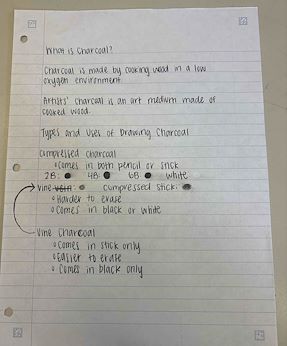 What is Charcoal?
Charcoal is made by cooking wood in a low
oxygen environment.
Artists' charcoal is an art medium made of
cooked wood.
Types and Uses of Drawing Charcoal
Compressed Charcoal
Comes in both pencil or stick
2B: 4B: 6B white
Vine vein: compressed stick:
Harder to erase
Comes in black or white
Vine Charcoal
Comes in stick only
Easier to erase
Comes in black only